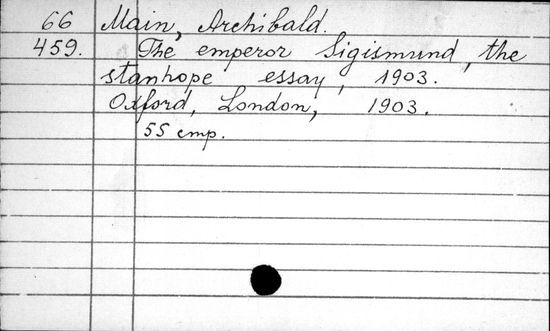 66 Main, Archibald.
459. The emperor Sigismund, the
stanhope essay, 1903.
Oxford, London, 1903.
55 cmp.